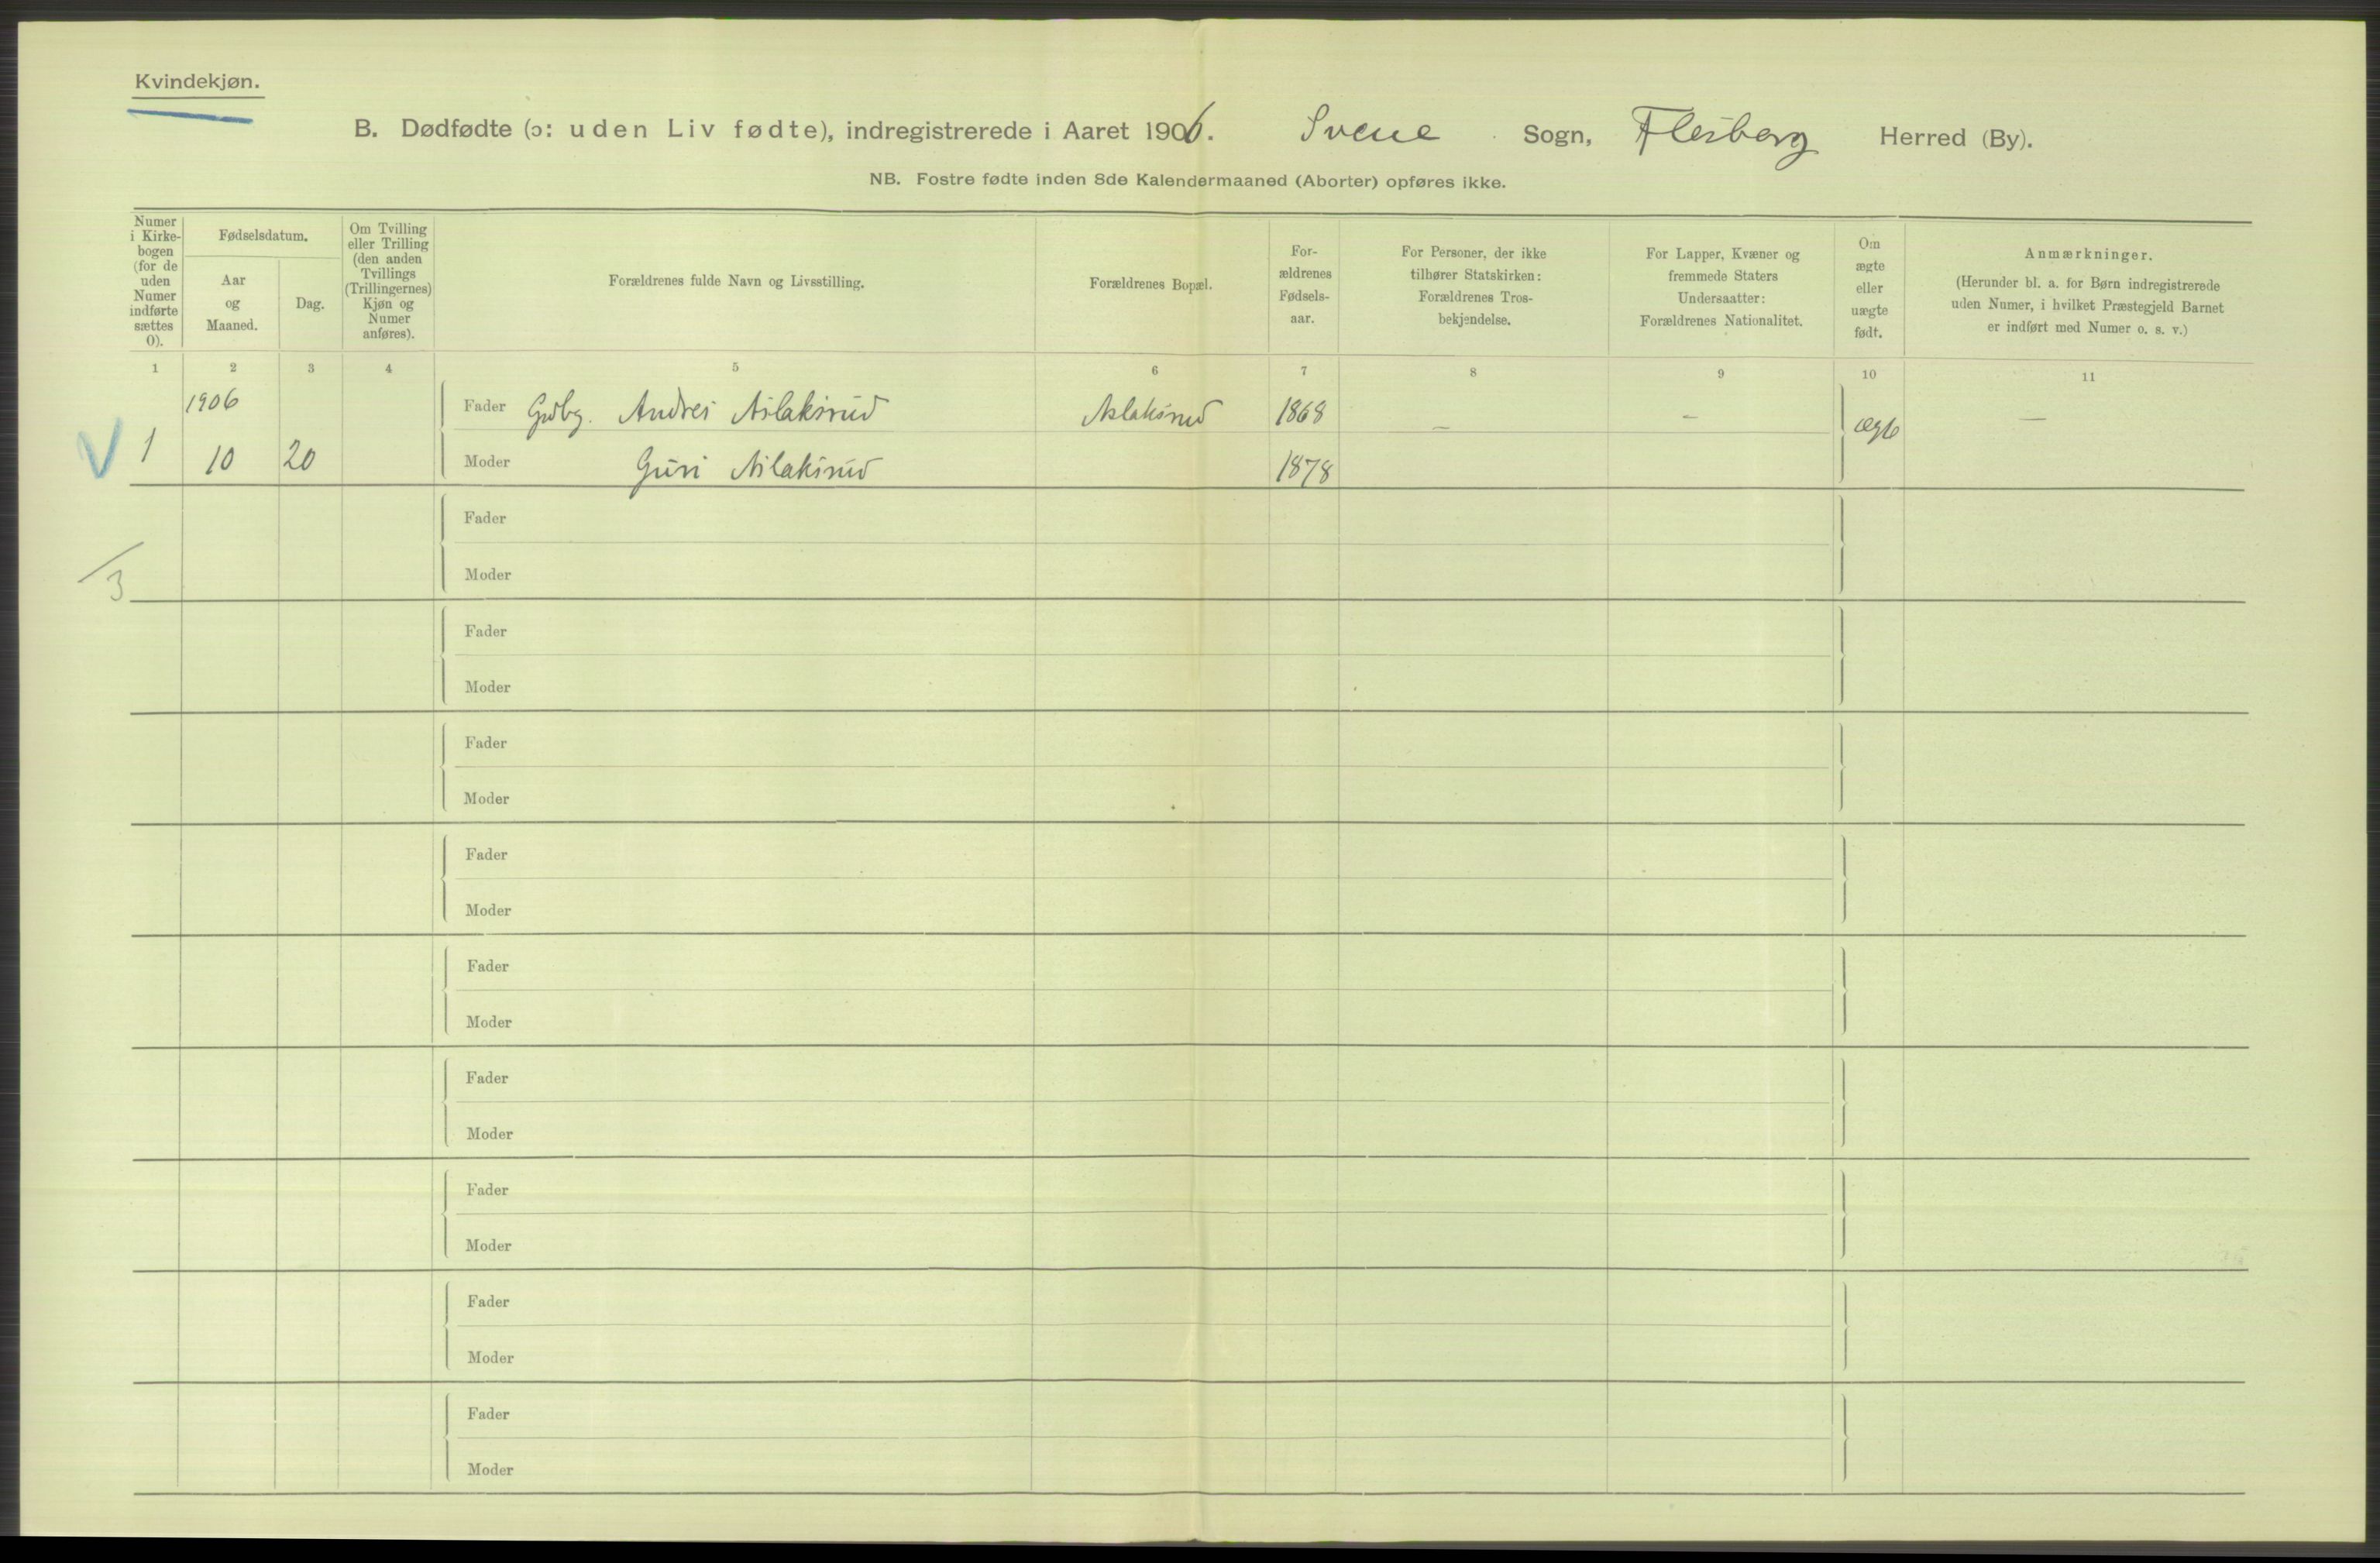 Kvindekjøn.
B. Dødfødte (ɔ: uden Liv fødte), indregistrerede i Aaret 1906. Svene Sogn, Flesberg Herred (By).
NB. Fostre fødte inden 8de Kalendermaaned (Aborter) opføres ikke.
Numer i Kirke-bogen (for de uden Numer indførte sættes 0).
Fødselsdatum.
Aar og Maaned.
Dag.
Om Tvilling eller Trilling (den anden Tvillings (Trillingernes) Kjøn og Numer anføres).
Forældrenes fulde Navn og Livsstilling.
Forældrenes Bopæl.
For-ældrenes Fødsels-aar.
For Personer, der ikke tilhører Statskirken: Forældrenes Tros-bekjendelse.
For Lapper, Kvæner og fremmede Staters Undersaatter: Forældrenes Nationalitet.
Om ægte eller uægte født.
Anmærkninger.
(Herunder bl. a. for Børn indregistrerede uden Numer, i hvilket Præstegjeld Barnet er indført med Numer o. s. v.)
1 2 3 4 5 6 7 8 9 10 11
1906 Fader Gdbg. Andres Aslaksrud Aslaksrud 1868 — — ægte —
1 10 20 Moder Guri Aslaksrud 1878
Fader
Moder
3
Fader
Moder
Fader
Moder
Fader
Moder
Fader
Moder
Fader
Moder
Fader
Moder
Fader
Moder
Fader
Moder